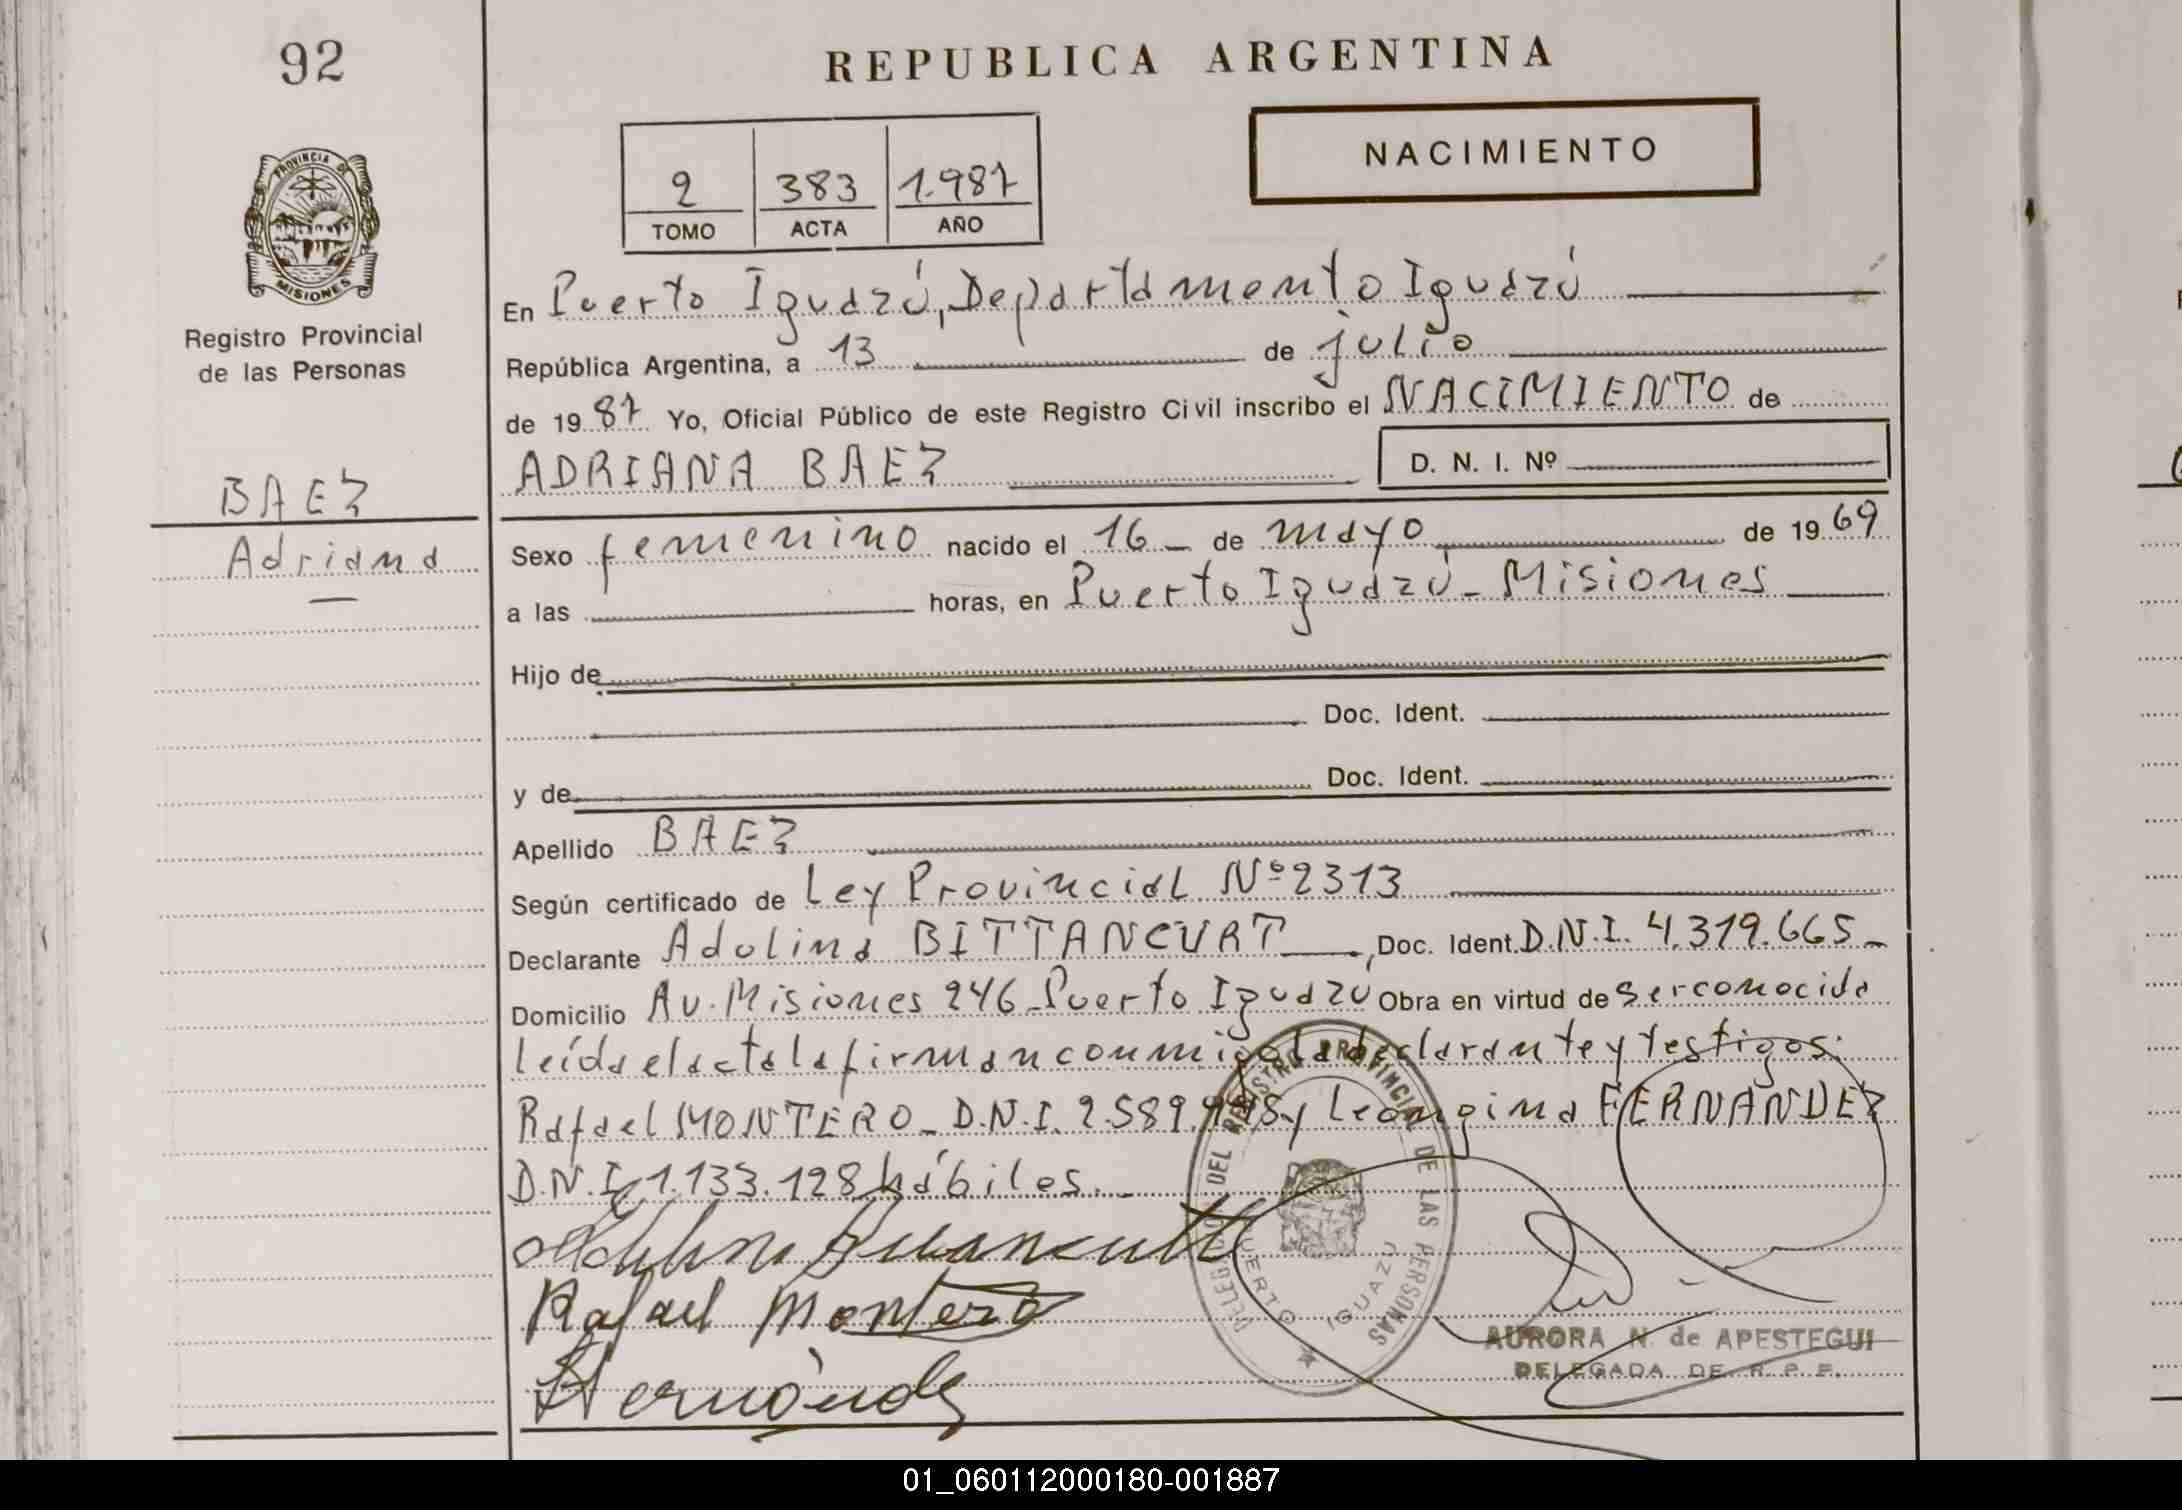 92
REPUBLICA ARGENTINA
PROVINCIA DE
MISIONES
Registro Provincial
de las Personas
2 383 1.987
TOMO ACTA AÑO
NACIMIENTO
En Puerto Iguazú, Departamento Iguazú
República Argentina, a 13 de julio
de 1987 Yo, Oficial Público de este Registro Civil inscribo el NACIMIENTO de
ADRIANA BAEZ D. N. I. Nº
BAEZ
Adriana
Sexo femenino nacido el 16 _ de mayo de 1969
a las horas, en Puerto Iguazú _ Misiones
Hijo de
Doc. Ident.
y de Doc. Ident.
Apellido BAEZ
Según certificado de Ley Provincial Nº 2313
Declarante Adolina BITTANCURT, Doc. Ident. D.N.I. 4.319.665 _
Domicilio Av. Misiones 246 _ Puerto Iguazu Obra en virtud de ser conocida
leída el acta la firman conmigo la declarante y testigos:
Rafael MONTERO _ D.N.I. 2.589. y Leongina FERNANDEZ
D.N.I. 1.133.128 hábiles. _
Rafael Montero
DELEGACION DEL REGISTRO PROVINCIAL DE LAS PERSONAS
PUERTO IGUAZU
AURORA N. de APESTEGUI
DELEGADA DE R. P. P.
01_060112000180-001887